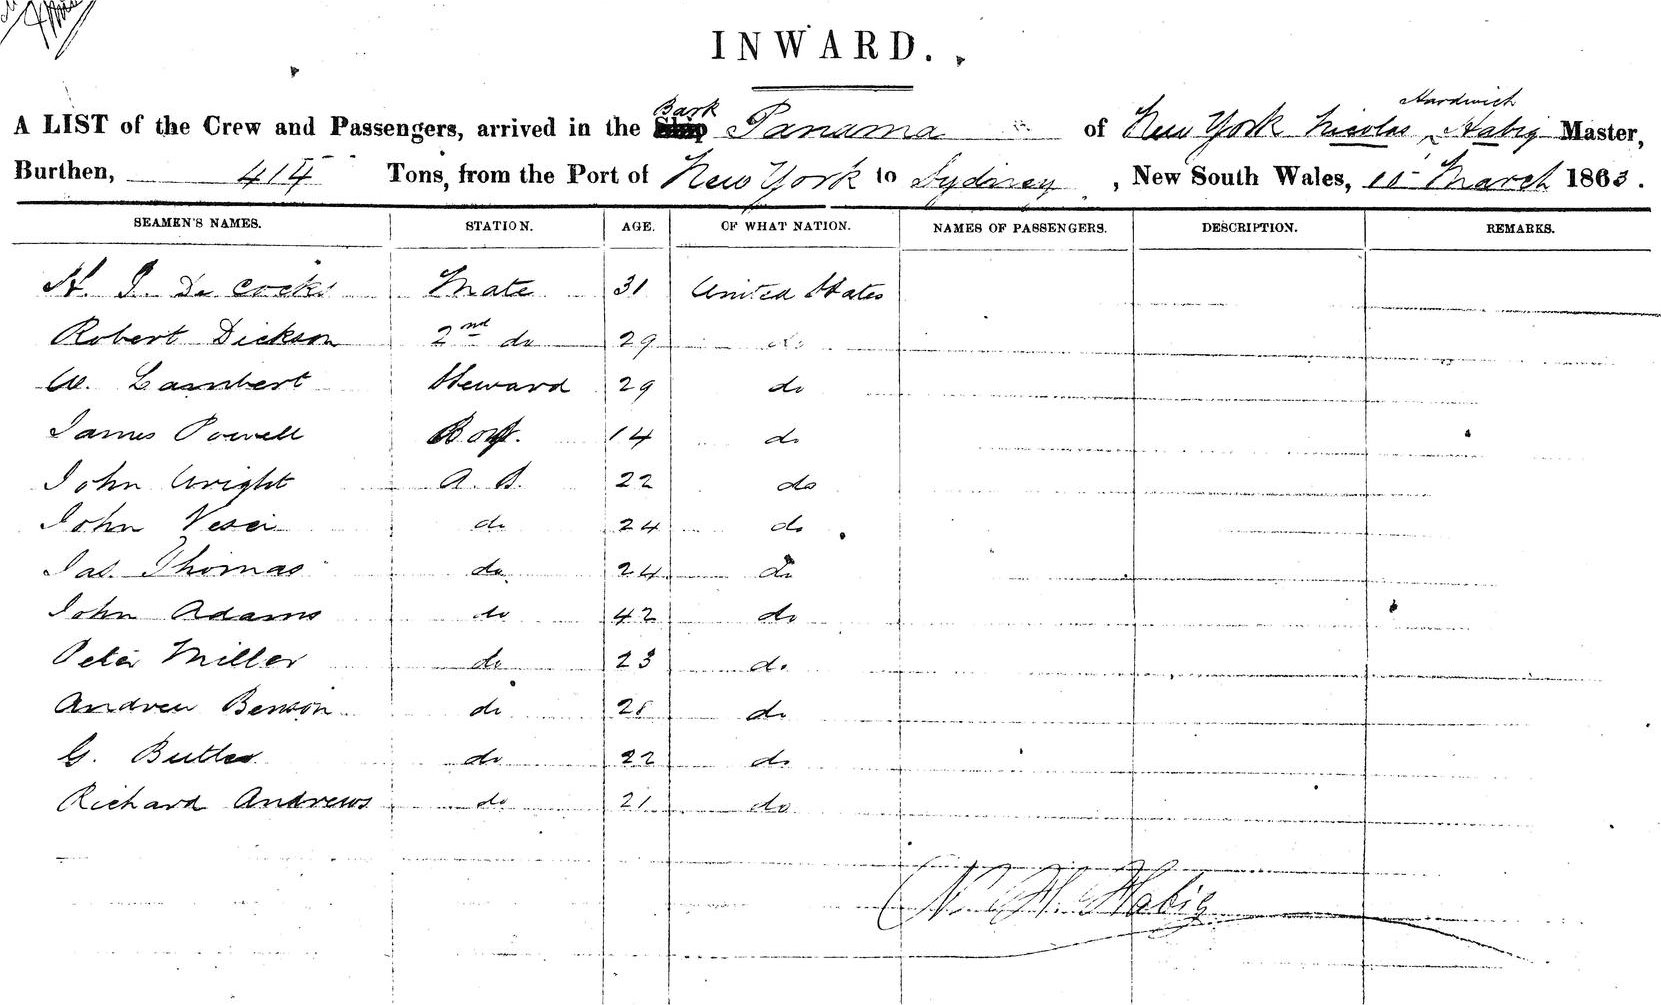 INWARD.
Bark Hardwick
A LIST of the Crew and Passengers, arrived in the Ship Panama of New York Nicolas Habig Master,
Burthen, 414 Tons, from the Port of New York to Sydney, New South Wales, March 1863.
SEAMEN'S NAMES. STATION. AGE. OF WHAT NATION. NAMES OF PASSENGERS. DESCRIPTION. REMARKS.
H. J. De Cocks Mate 31 United States
Robert Dickson 2nd do 29 do
W. Lambert Steward 29 do
James Powell Boy. 14 do
John Wright A. B. 22 do
John Vesei do 24 do
Jas. Thomas do 24 do
John Adams do 42 do
Peter Miller do 23 do
Andrew Benson do do
G. Butler do 22 do
Richard Andrews do 21 do
N. H. Habig